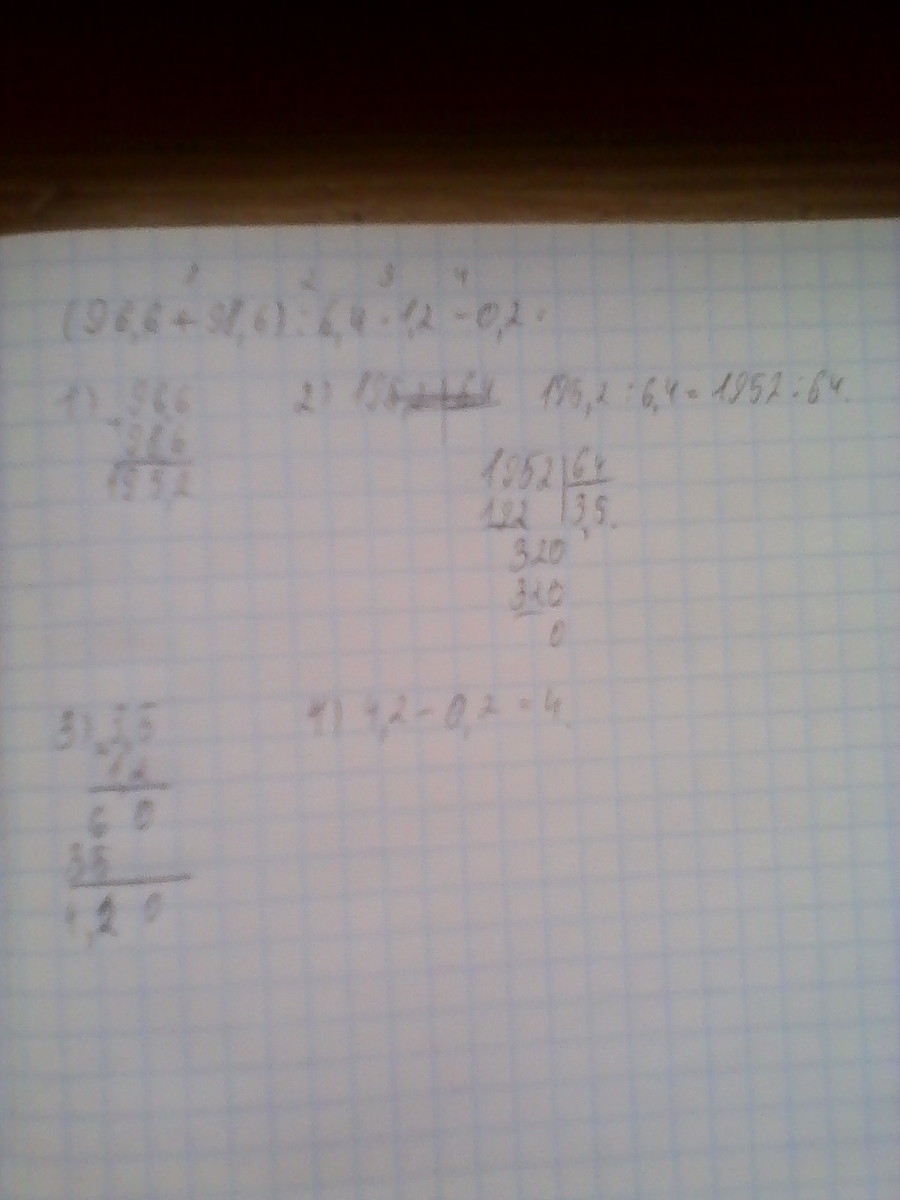 1 2 3 4
(96,6 + 98,6) : 6,4 · 1,2 - 0,2 =
1) 966
+
986
195,2
2) 195,2 : 6,4 = 1952 : 64.
1952 64
192 3,5.
320
310
0
3) 3,5
× 1,2
6 0
35
4,2 0
4) 4,2 - 0,2 = 4.